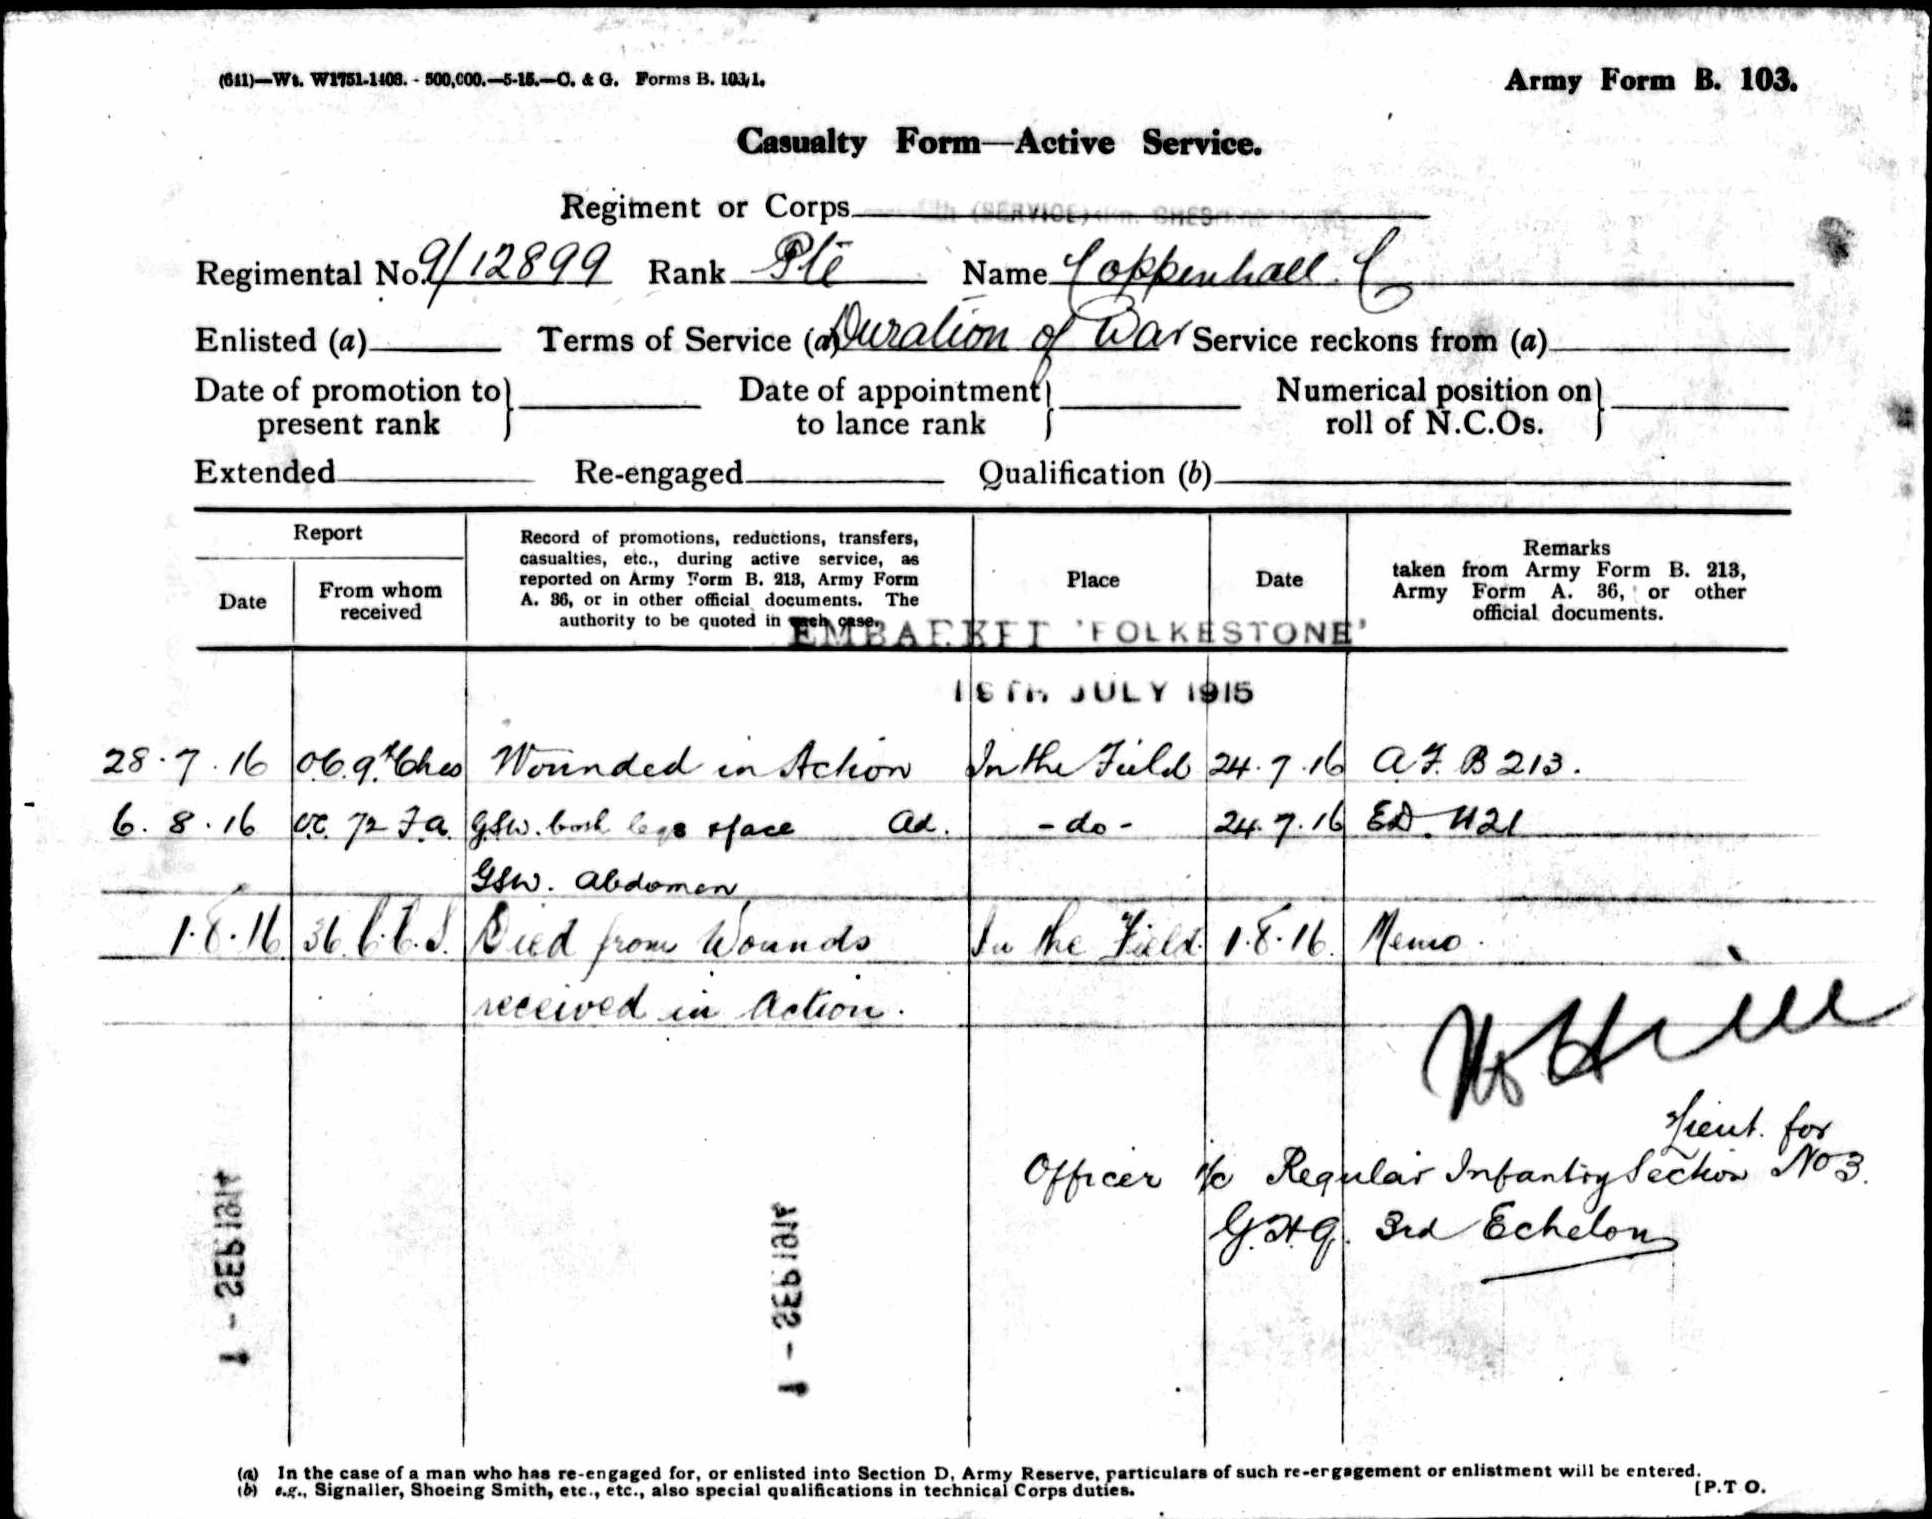 (611)—Wt. W1751-1408. - 500,000.—5-15.—C. & G. Forms B. 103/1.
Army Form B. 103.
Casualty Form—Active Service.
Regiment or Corps (SERVICE)
Regimental No. 9/12899 Rank Pte Name Coppenhall. C
Enlisted (a) Terms of Service (a) Duration of War Service reckons from (a)
Date of promotion to present rank } Date of appointment to lance rank } Numerical position on roll of N.C.Os. }
Extended Re-engaged Qualification (b)
Report
Date
From whom received
Record of promotions, reductions, transfers,
casualties, etc., during active service, as
reported on Army Form B. 213, Army Form
A. 36, or in other official documents. The
authority to be quoted in each case.
Place
Date
Remarks
taken from Army Form B. 213,
Army Form A. 36, or other
official documents.
'FOLKESTONE'
JULY 1915
28.7.16 O.C. 9th Ches Wounded in Action In the Field 24.7.16 A.F. B 213.
6.8.16 O.C. 72 F.A. GSW. both legs & face Ad. -do- 24.7.16 ED.
GSW. Abdomen
1.8.16 36 C.C.S. Died from Wounds In the Field. 1.8.16. Memo.
received in Action.
Hill
Lieut. for
Officer i/c Regular Infantry Section No 3.
G.H.Q. 3rd Echelon
1 - SEP 191
1 - SEP 191
(a) In the case of a man who has re-engaged for, or enlisted into Section D, Army Reserve, particulars of such re-engagement or enlistment will be entered.
(b) e.g., Signaller, Shoeing Smith, etc., etc., also special qualifications in technical Corps duties.
[P.T O.